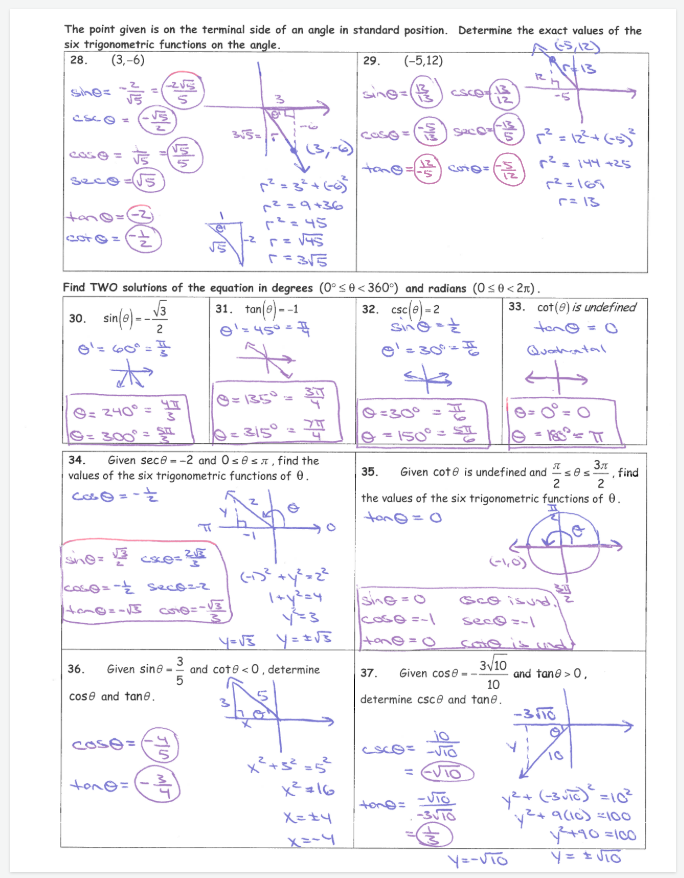 The point given is on the terminal side of an angle in standard position. Determine the exact values of the
six trigonometric functions on the angle.
28. (3,-6)
sinθ = -2/√5 = -2√5/5
cscθ = -√5/2
cosθ = 1/√5 = √5/5
secθ = √5
tanθ = -2
cotθ = -1/2
3
θ'
-6
3√5 = r
(3,-6)
1
θ'
-2
√5
r² = 3² + (-6)²
r² = 9+36
r² = 45
r = √45
r = 3√5
29. (-5,12)
(-5,12)
r=13
12
-5
sinθ = 12/13 cscθ = 13/12
cosθ = -5/13 secθ = -13/5
tanθ = 12/-5 cotθ = -5/12
r² = 12² + (-5)²
r² = 144 + 25
r² = 169
r = 13
Find TWO solutions of the equation in degrees (0° ≤ θ < 360°) and radians (0 ≤ θ < 2π).
30. sin(θ) = -√3/2
θ' = 60° = π/3
θ = 240° = 4π/3
θ = 300° = 5π/3
31. tan(θ) = -1
θ' = 45° = π/4
θ = 135° = 3π/4
θ = 315° = 7π/4
32. csc(θ) = 2
sinθ = 1/2
θ' = 30° = π/6
θ = 30° = π/6
θ = 150° = 5π/6
33. cot(θ) is undefined
tanθ = 0
Quadrantal
θ = 0° = 0
θ = 180° = π
34. Given secθ = -2 and 0 ≤ θ ≤ π, find the
values of the six trigonometric functions of θ.
cosθ = -1/2
y
2
θ
π
-1
0
sinθ = √3/2 cscθ = 2√3/3
cosθ = -1/2 secθ = -2
tanθ = -√3 cotθ = -√3/3
(-1)² + y² = 2²
1 + y² = 4
y² = 3
y = √3 y = ±√3
35. Given cotθ is undefined and π/2 ≤ θ ≤ 3π/2, find
the values of the six trigonometric functions of θ.
tanθ = 0
π/2
θ
(-1,0)
3π/2
sinθ = 0 cscθ is und.
cosθ = -1 secθ = -1
tanθ = 0 cotθ is und
36. Given sinθ = 3/5 and cotθ < 0, determine
cosθ and tanθ.
3
5
θ'
x
cosθ = -4/5
tanθ = -3/4
x² + 3² = 5²
x² = 16
x = ±4
x = -4
37. Given cosθ = -3√10/10 and tanθ > 0,
determine cscθ and tanθ.
-3√10
θ'
y
10
cscθ = 10/-√10
= -√10
tanθ = -√10/-3√10
= 1/3
y² + (-3√10)² = 10²
y² + 9(10) = 100
y² + 90 = 100
y = -√10 y = ±√10